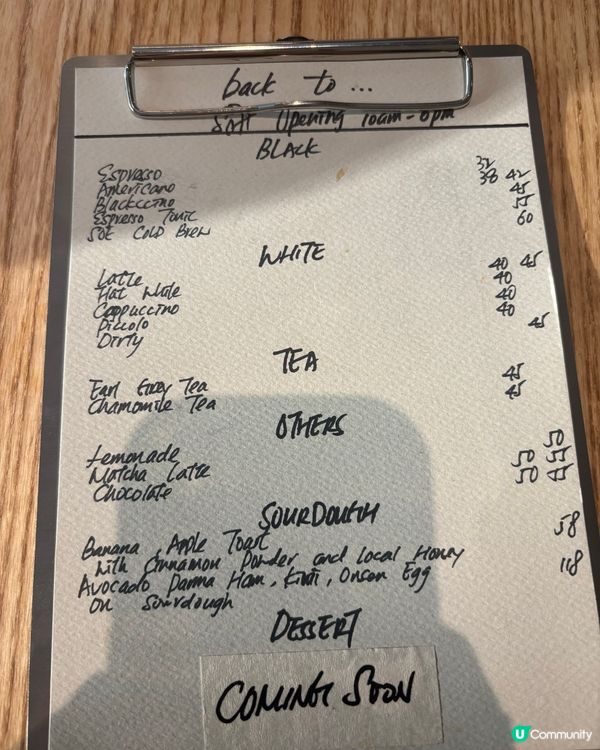 back to ...
Soft Opening 10am-6pm
BLACK
Espresso 32
Americano 38 42
Blackccino 45
Espresso Tonic 55
SOE COLD BREW 60
WHITE
Latte 40 45
Flat White 40
Cappuccino 40
Piccolo 40
Dirty 45
TEA
Earl Grey Tea 45
Chamomile Tea 45
OTHERS
Lemonade 50
Matcha Latte 50 55
Chocolate 50
SOURDOUGH
Banana, Apple Toast 58
with Cinnamon Powder and Local Honey
Avocado Parma Ham, Kiwi, Onsen Egg 118
on Sourdough
DESSERT
COMING SOON
U Community